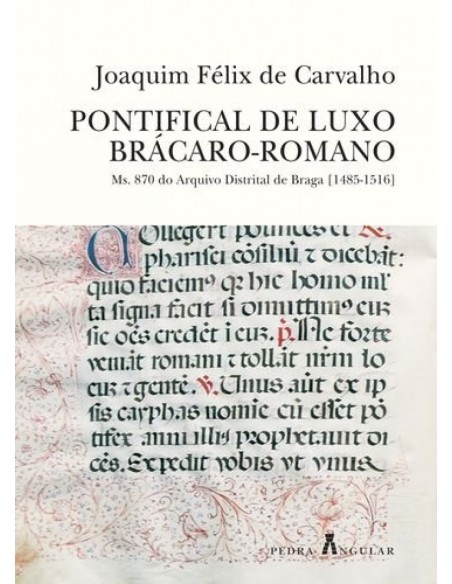 Joaquim Félix de Carvalho
PONTIFICAL DE LUXO
BRÁCARO-ROMANO
Ms. 870 do Arquivo Distrital de Braga [1485-1516]
Collegert pontifices et
pharisei cōsiliū ⁊ dicebāt:
quid faciemꝰ qꝛ hic homo ml̄
ta signa facit si dimittimꝰ eū
sic oēs credēt i eū. p. Ne forte
veniāt romani ⁊ tollāt nr̄m lo
cū ⁊ gentē. v. Unus aūt ex ip
sis cayphas nomīe cū esset pō
tifex anni illiꝰ prophetauit di
cēs. Expedit vobis vt vnus
PEDRA ANGULAR